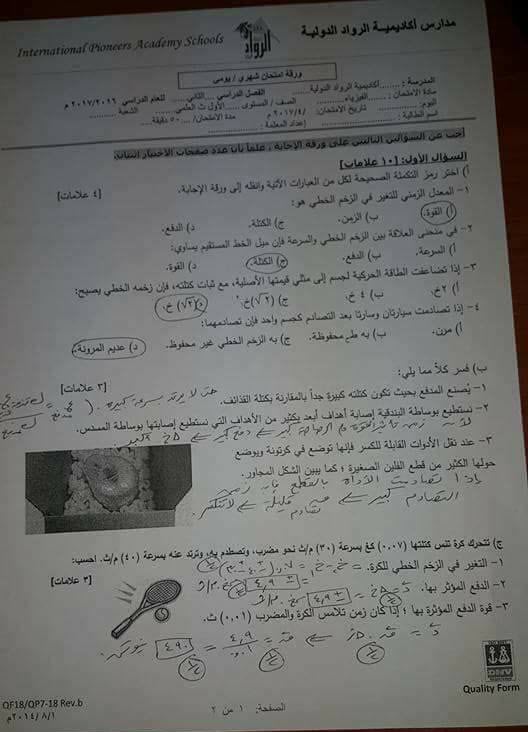 مدارس أكاديمية الرواد الدولية
الرواد
International Pioneers Academy Schools
ورقة امتحان شهري / يومي
المدرسة : ......أكاديمية الرواد الدولية...... الفصل الدراسي .....الثاني..... للعام الدراسي ٢٠١٧/٢٠١٦ م
مادة الامتحان: ......الفيزياء...... الصف / المستوى .....الأول ث العلمي..... الشعبة ......
اليوم: ...... تاريخ الامتحان: /٤/ ٢٠١٧ م مدة الامتحان/ .... ٥٠ دقيقة....
اسم الطالبة : ...... إعداد المعلمة :
أجب عن السؤالين التاليين على ورقة الإجابة ، علماً بأن عدد صفحات الاختبار اثنتان.
السؤال الأول: [١٠ علامات]
أ) اختر رمز التكملة الصحيحة لكل من العبارات الآتية وانقله إلى ورقة الإجابة. [٤ علامات]
١- المعدل الزمني للتغير في الزخم الخطي هو:
أ) القوة. ب) الزمن. ج) الكتلة. د) الدفع.
٢- في منحنى العلاقة بين الزخم الخطي والسرعة فإن ميل الخط المستقيم يساوي:
أ) السرعة. ب) الدفع. ج) الكتلة. د) القوة.
٣- إذا تضاعفت الطاقة الحركية لجسم إلى مثلي قيمتها الأصلية، مع ثبات كتلته، فإن زخمه الخطي يصبح:
أ) ٢خ. ب) ٤ خ. ج) (√٢) خ.٢ د) (√٢) خ.
٤- إذا تصادمت سيارتان وسارتا بعد التصادم كجسم واحد فإن تصادمهما:
أ) مرن. ب) به طح محفوظة. ج) به الزخم الخطي غير محفوظ. د) عديم المرونة.
ب) فسر كلاً مما يلي: [٣ علامات]
١- يُصنع المدفع بحيث تكون كتلته كبيرة جداً بالمقارنة بكتلة القذائف.
حتى لا يرتد بسرعة كبيرة
٢- نستطيع بوساطة البندقية إصابة أهداف أبعد بكثير من الأهداف التي نستطيع إصابتها بوساطة المسدس.
لأنه زمن تأثير القوة في الرصاصة أكبر ⇐ دفع أكبر ⇐ Δخ أكبر
٣- عند نقل الأدوات القابلة للكسر فإنها توضع في كرتونة ويوضع
حولها الكثير من قطع الفلين الصغيرة ؛ كما يبين الشكل المجاور.
إذا تصادمت الأداة بالقطع فإن زمن
التصادم كبير ⇐ قوة تصادم قليلة ⇐ لا تنكسر.
ج) تتحرك كرة تنس كتلتها (٠,٠٧) كغ بسرعة (٣٠) م/ث نحو مضرب، وتصطدم به، وترتد عنه بسرعة (٤٠) م/ث. احسب:
١- التغير في الزخم الخطي للكرة.
[٣ علامات]
٢- الدفع المؤثر بها. د = Δخ = ٤,٩ كغ.م/ث
٣- قوة الدفع المؤثرة بها ؛ إذا كان زمن تلامس الكرة والمضرب (٠,٠١) ث.
د = ق . Δز ⇐ ق = ٤,٩ / ٠,٠١ = ٤٩٠ نيوتن.
DNV
Quality Form
الصفحة: ١ من ٢
QF18/QP7-18 Rev.b
٢٠١٤/٨/١م